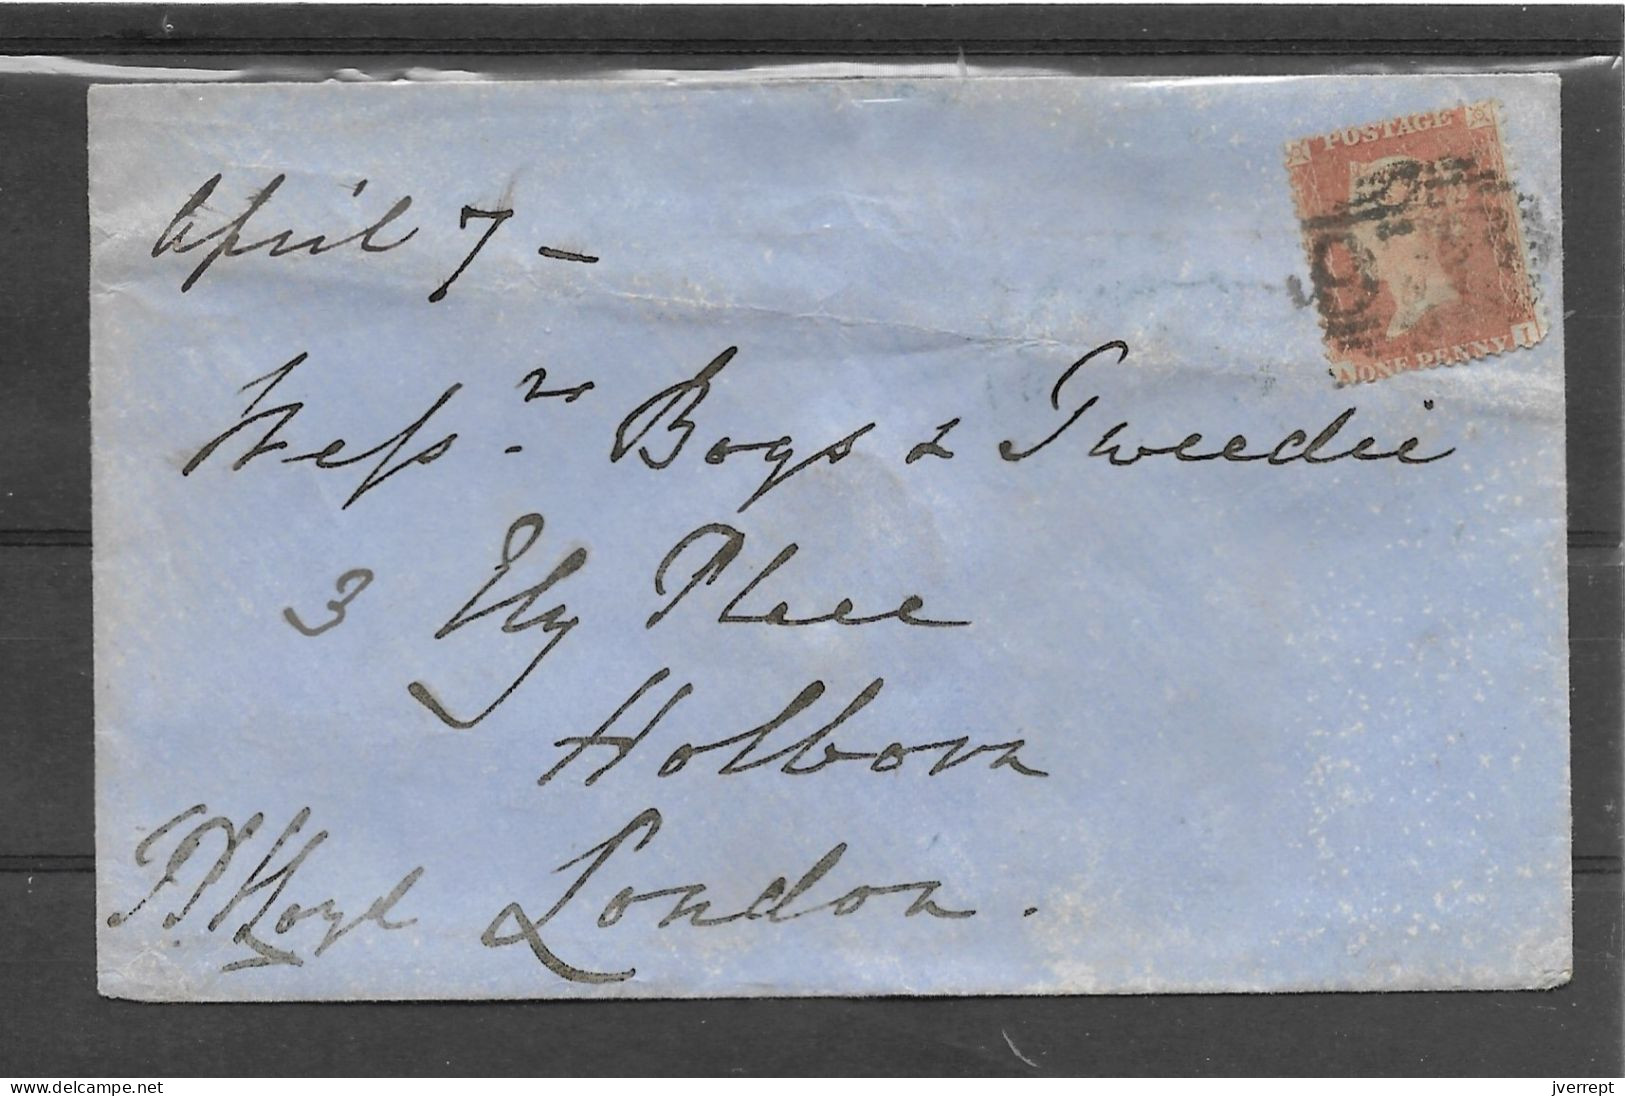 April 7 –
POSTAGE
N ONE PENNY I
Messrs Boys & Tweedie
3 Ely Place
Holborn
London.
www.delcampe.net
jverrept